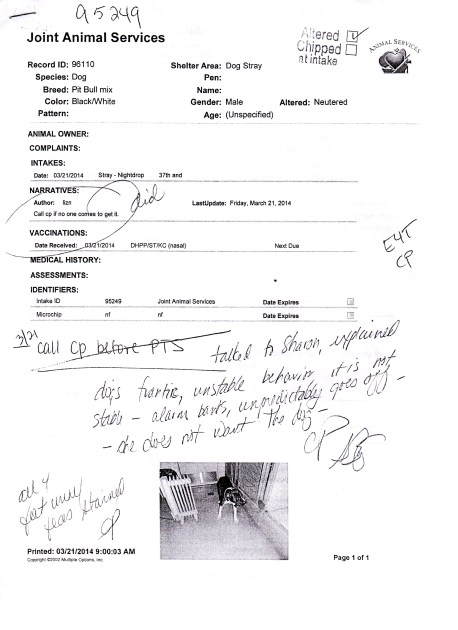 95249
Joint Animal Services
Altered
Chipped
at intake
ANIMAL SERVICES
Record ID: 96110 Shelter Area: Dog Stray
Species: Dog Pen:
Breed: Pit Bull mix Name:
Color: Black/White Gender: Male Altered: Neutered
Pattern: Age: (Unspecified)
ANIMAL OWNER:
COMPLAINTS:
INTAKES:
Date: 03/21/2014 Stray - Nightdrop 37th and
NARRATIVES:
Author: lizn did LastUpdate: Friday, March 21, 2014
Call cp if no one comes to get it.
VACCINATIONS:
Date Received: 03/21/2014 DHPP/ST/KC (nasal) Next Due
E4T
CP
MEDICAL HISTORY:
ASSESSMENTS:
IDENTIFIERS:
Intake ID 95249 Joint Animal Services Date Expires
Microchip nf nf Date Expires
3/21 call cp before PTS talked to Sharon, explained
dogs frantic, unstable behavior it is not
stable - alarm barks, unpredictably goes off -
- she does not want the dog -
CP
all 4
feet
feces stained
CP
Printed: 03/21/2014 9:00:03 AM
Copyright ©2002 Multiple Options, Inc.
Page 1 of 1